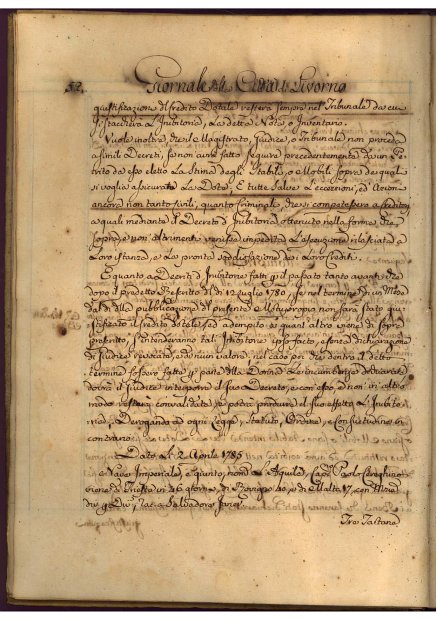 52 Giornale della Città di Livorno
giustificazione di Credito Dotale resterà sempre nel Tribunale da cui
si staccherà l'Inibitoria, la detta Nota o Inventario.
Vuole inoltre, che il Magistrato, Giudice, o Tribunale non proceda
a simili Decreti, se non avrà fatto seguire precedentemente da un Pe-
rito da esso eletto la Stima degli Stabili, o Mobili sopra dei quali
si voglia assicurata la Dote, E tutte salve l'eccezioni, ed Azioni
ancora non tanto Civili, quanto Criminali, che si competessero a Creditori,
a quali mediante il Decreto d'Inibitoria ottenuto nella forma che
sopra, e non altrimenti venisse impedita l'esecuzione rilasciata a
Loro istanza, e la pronta sodisfazione dei Loro Crediti.
E quanto a Decreti d'Inibitorie fatti per il passato tanto avanti, che
dopo il predetto Rescritto del dì 12 Luglio 1780, se nel termine di un Mese
dal dì della pubblicazione del presente Motuproprio non sarà stato giu-
stificato il credito dotale, ed adempito a quant'altro viene di sopra
prescritto, s'intenderanno tali Inibitorie ipso facto, e senza dichiarazione
di Giudice revocate, e di niun valore. nel caso poi che dentro il detto
termine fossero fatte per parte della Donna le incumbenze
dovrà il Giudice interporre il suo Decreto, e con esso, e non in altro
modo resterà convalidata, e potrà produrre il suo effetto l'Inibito-
ria; Derogando ad ogni Legge, Statuto, Ordine, e Consuetudine in
contrario.
Dato, li 2. Aprile 1785
e Nave Imperiale, è giunto, nom.ta L'Aquila, Cap.o Paolo
vione da Trieste in 46 giorni, di Rovigno 40, e di Malta 17, con
di Salvadore
Tre Tartane